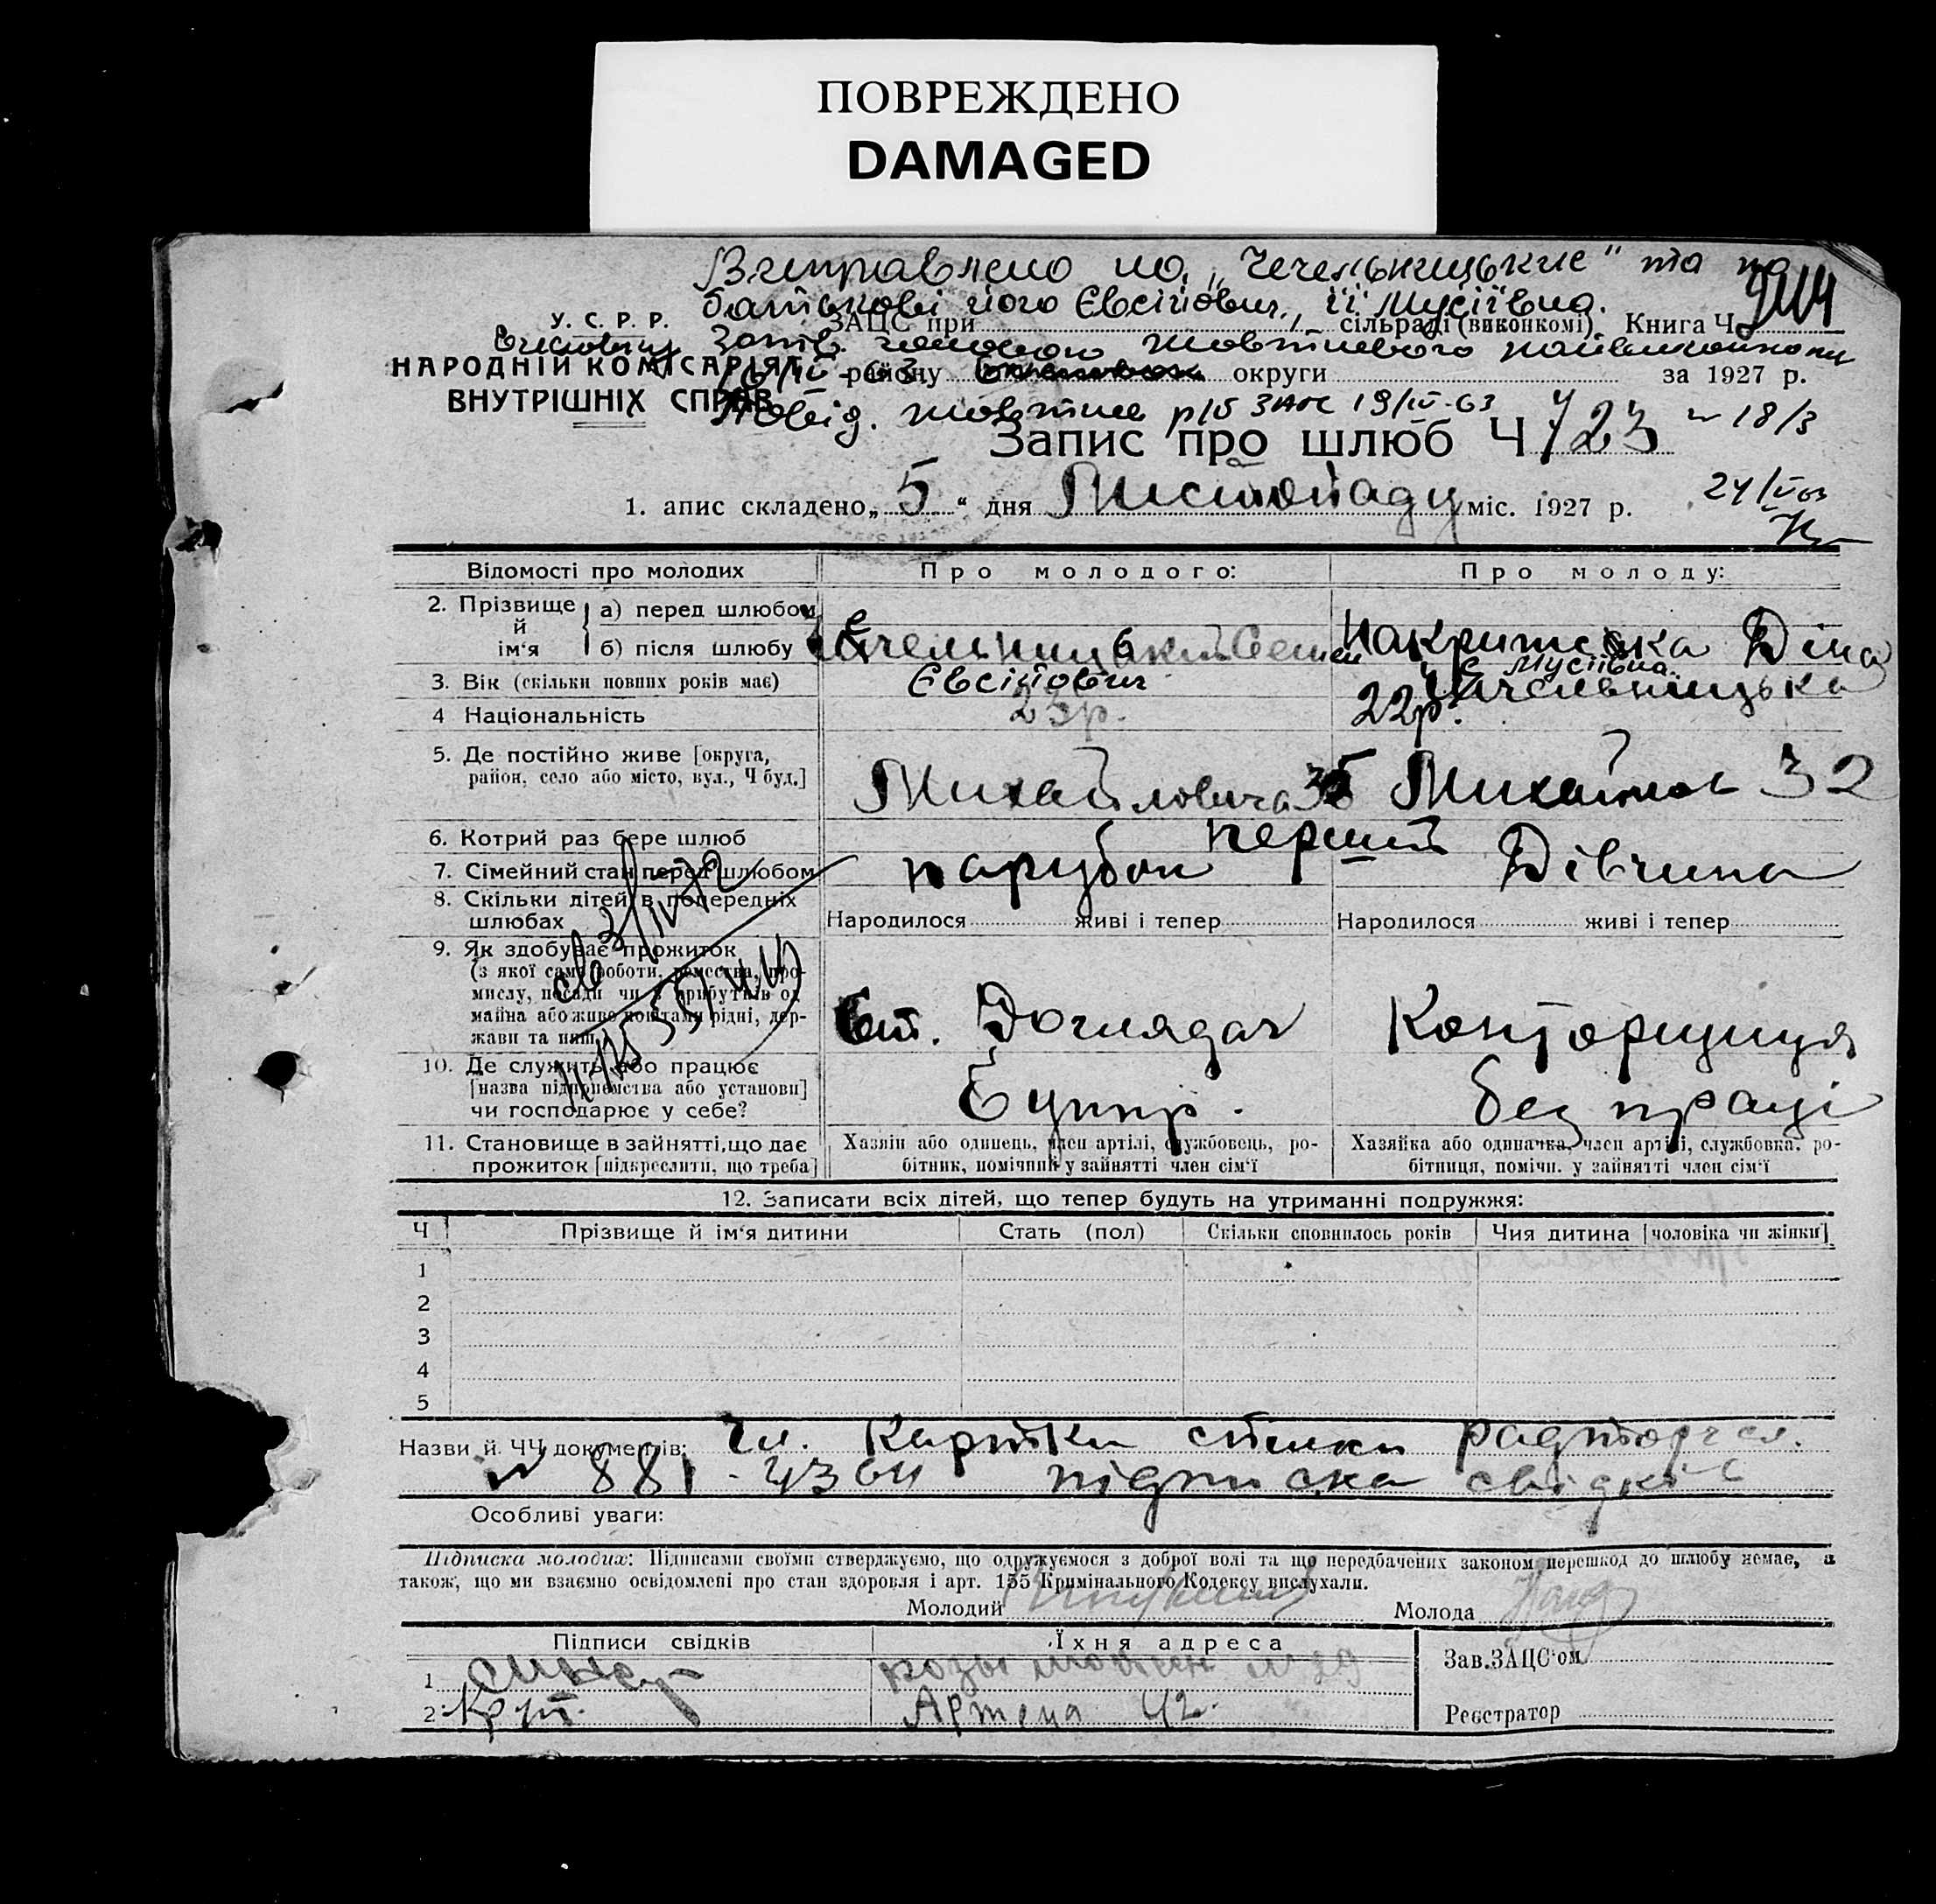 ПОВРЕЖДЕНО
DAMAGED
Виправлено на „Чечельницькие" та по
батькові його Євсійович, її Мусіївна.
У. С. Р. Р.
ЗАЦС при сільраді (виконкомі). Книга Ч.
НАРОДНІЙ КОМІСАРІЯТ
району округи за 1927 р.
ВНУТРІШНІХ СПРАВ
Повід. р/б ЗАГС 19/IV-63
Запис про шлюб Ч 723 18/3
1. апис складено „5" дня Листопаду міс. 1927 р.
Відомості про молодих Про молодого: Про молоду:
2. Прізвище й ім'я
а) перед шлюбом
б) після шлюбу
Чечельницький Семен
Накритська Діна
Мусіївна
Чечельницька
3. Вік (скільки повних років має) Євсійович
4 Національність 23р. 22р.
5. Де постійно живе [округа,
район, село або місто, вул., Ч буд.]
Михайлович 32
6. Котрий раз бере шлюб перший
7. Сімейний стан перед шлюбом парубок Дівчина
8. Скільки дітей в попередніх
шлюбах Народилося живі і тепер Народилося живі і тепер
9. Як здобуває прожиток
(з якої саме роботи, ремества, про-
мислу, посади чи з прибутків од
майна або живе коштами рідні, дер-
жави та инш.
Доглядач Конторщиця
10. Де служить або працює
[назва підприємства або установи]
чи господарює у себе?
Буппр. без праці
11. Становище в зайнятті, що дає
прожиток [підкреслити, що треба]
Хазяїн або одинець, член артілі, службовець, ро-
бітник, помічник у зайнятті член сім'ї
Хазяйка або одиначка, член артілі, службовка, ро-
бітниця, помічн. у зайнятті член сім'ї
12. Записати всіх дітей, що тепер будуть на утриманні подружжя:
Ч Прізвище й ім'я дитини Стать (пол) Скільки сповнилось років Чия дитина [чоловіка чи жінки]
1
2
3
4
5
Назви й ЧЧ документів: Чл. Картки спілки
№ 881 підписка свідків
Особливі уваги:
Підписка молодих: Підписами своїми стверджуємо, що одружуємося з доброї волі та що передбачених законом перешкод до шлюбу немає, а
також, що ми взаємно освідомлені про стан здоровля і арт. 155 Кримінального Кодексу вислухали.
Молодий Молода
Підписи свідків Їхня адреса
Зав.ЗАЦС'ом
1
2 Артема 42.
Реєстратор